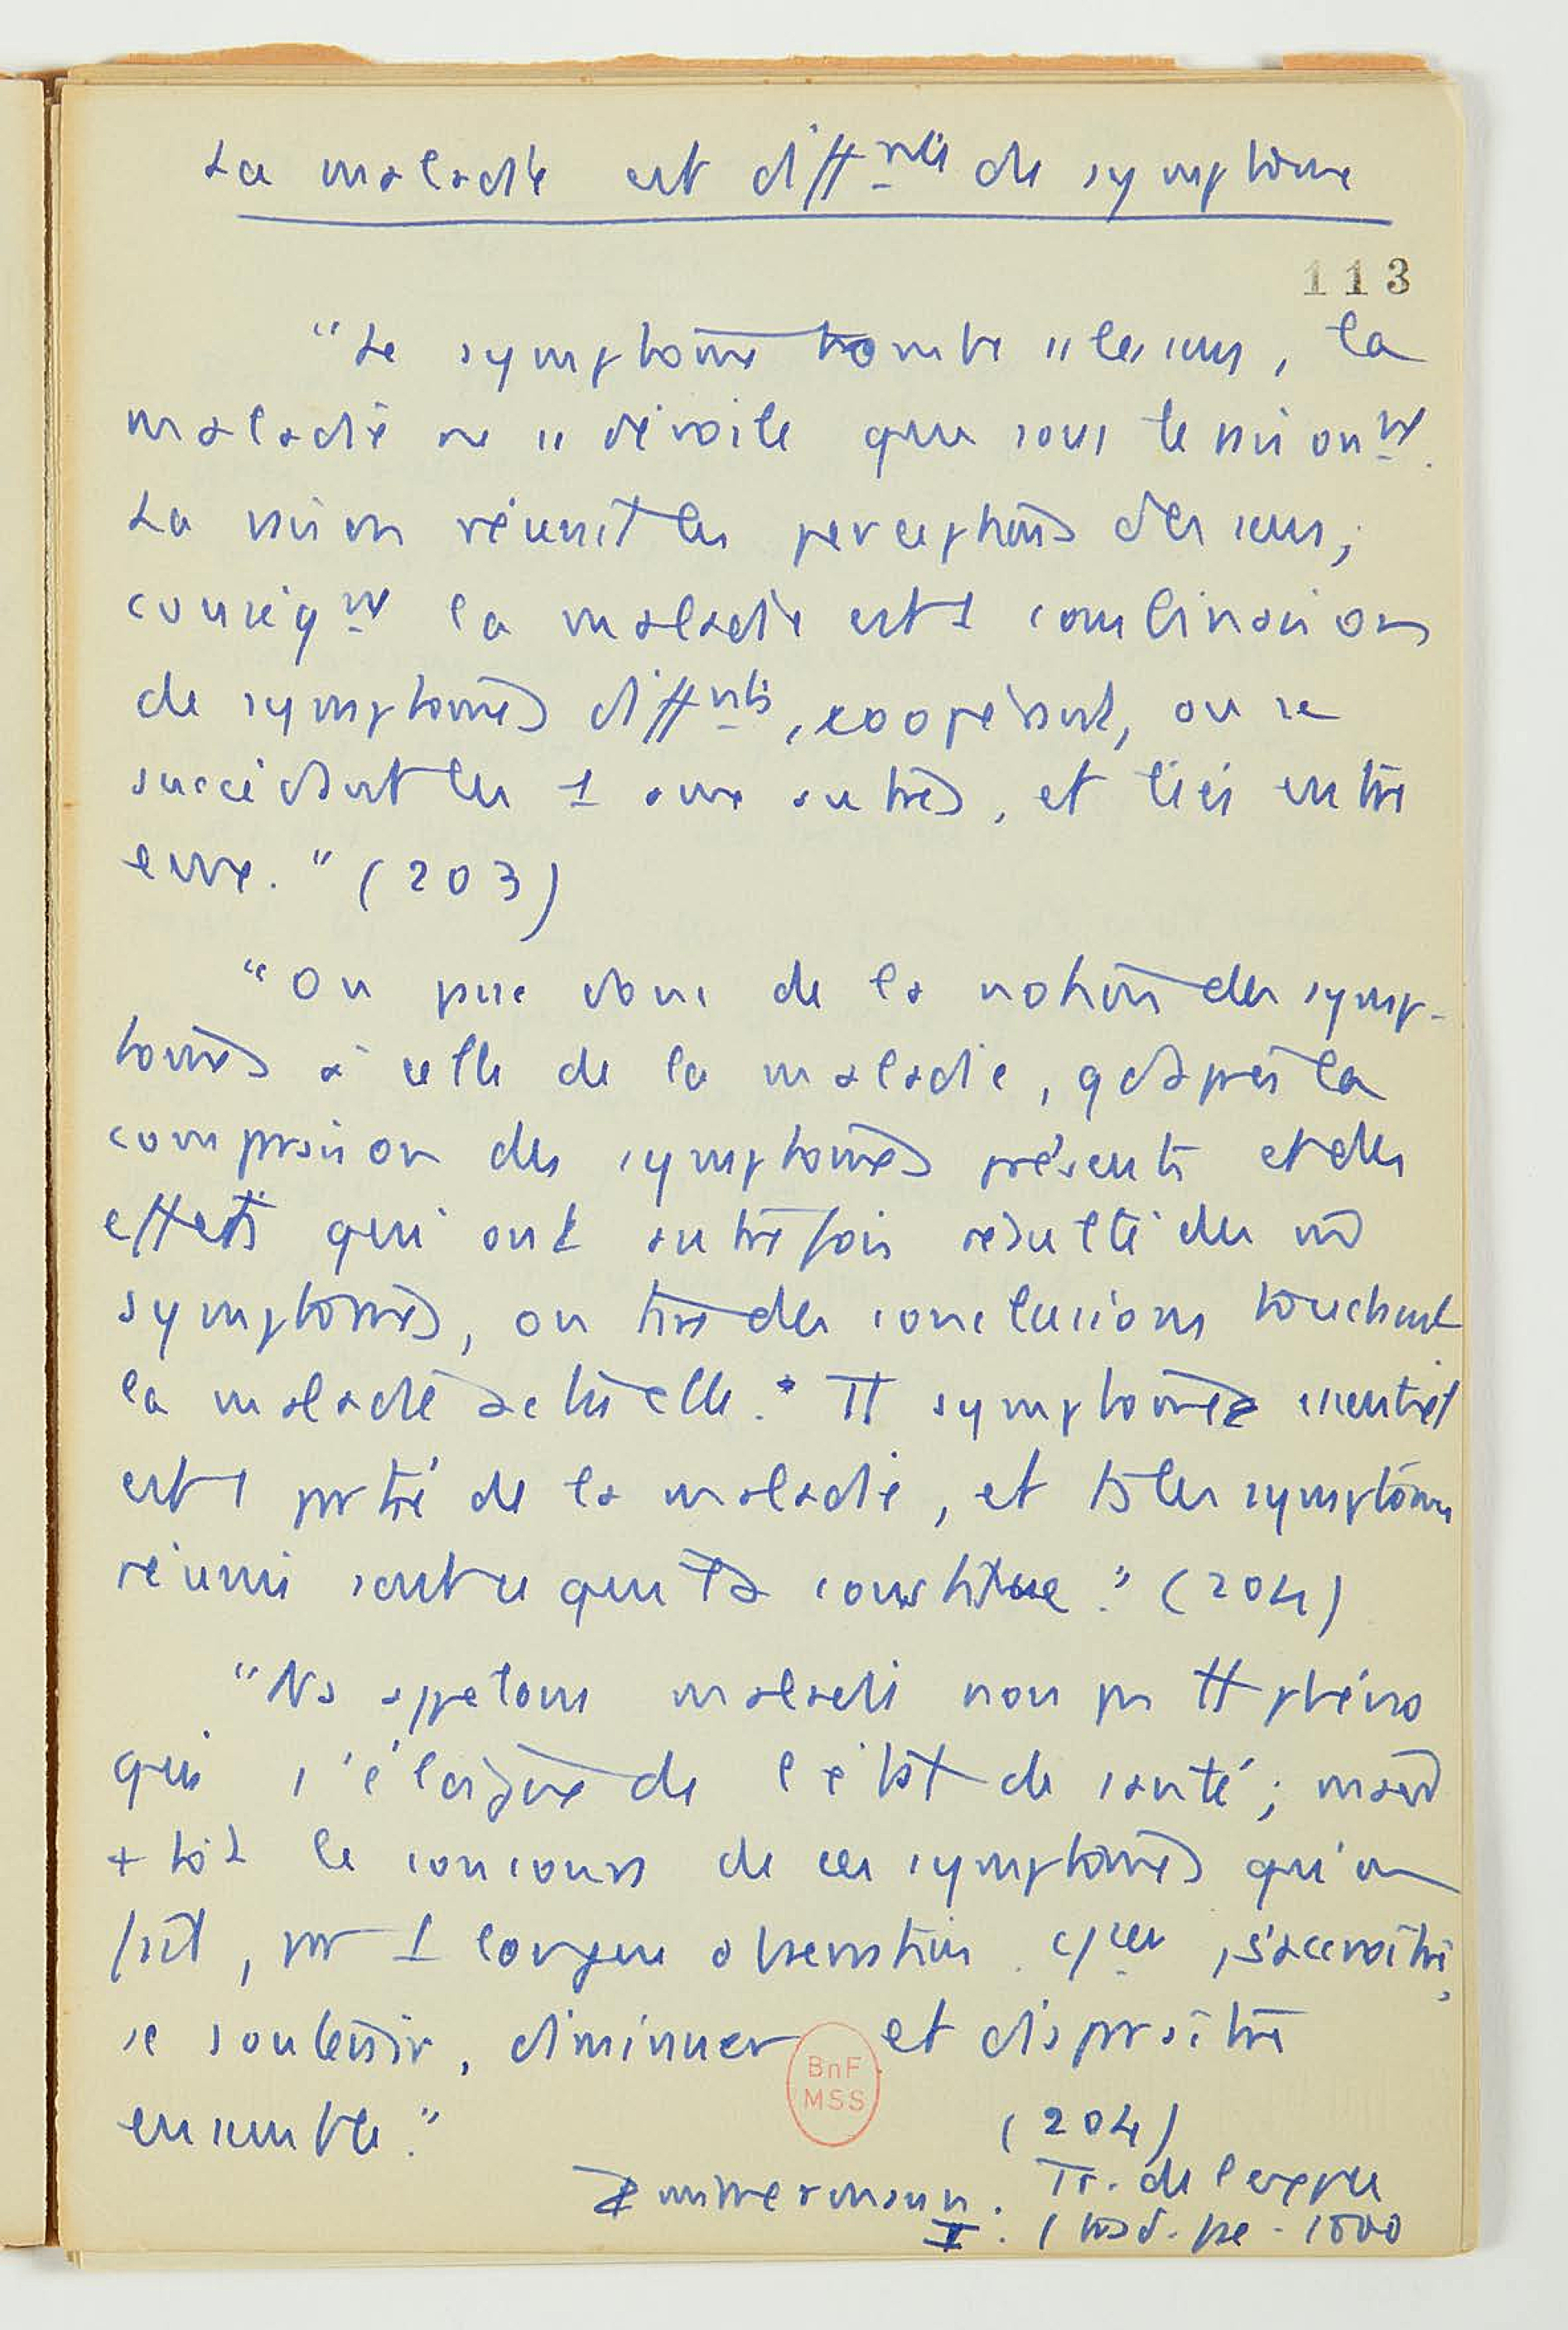 La maladie est diff^nte de symptôme
113
"Le symptôme tombe ss les sens, la
maladie ne se dévoile que sous le raisonnt.
La raison réunit les perceptions des sens;
conséqnt la maladie est 1 combinaison
de symptômes diffnts, coopérant, ou se
succédant les 1 aux autres, et liés entre
eux." (203)
"On passe donc de la notion des symp-
tômes à celle de la maladie, qd après la
comparaison des symptômes présents et des
effets qui ont autrefois résulté des m̂
symptômes, on tire des conclusions touchant
la maladie actuelle." Tt symptôme essentiel
est 1 partie de la maladie, et ts les symptômes
réunis sont ce qui la constitue." (204)
"Ns appelons maladie non pas tt phéno
qui s'éloigne de l'état de santé; mais
+ tôt le concours de ces symptômes qu'on
sait, par 1 longue observation, c/cer, s'accroître,
se soutenir, diminuer et disparaître
ensemble."
BnF
MSS
(204)
Zimmermann. Tr. de l'expce
I. (trad. fse - 1800